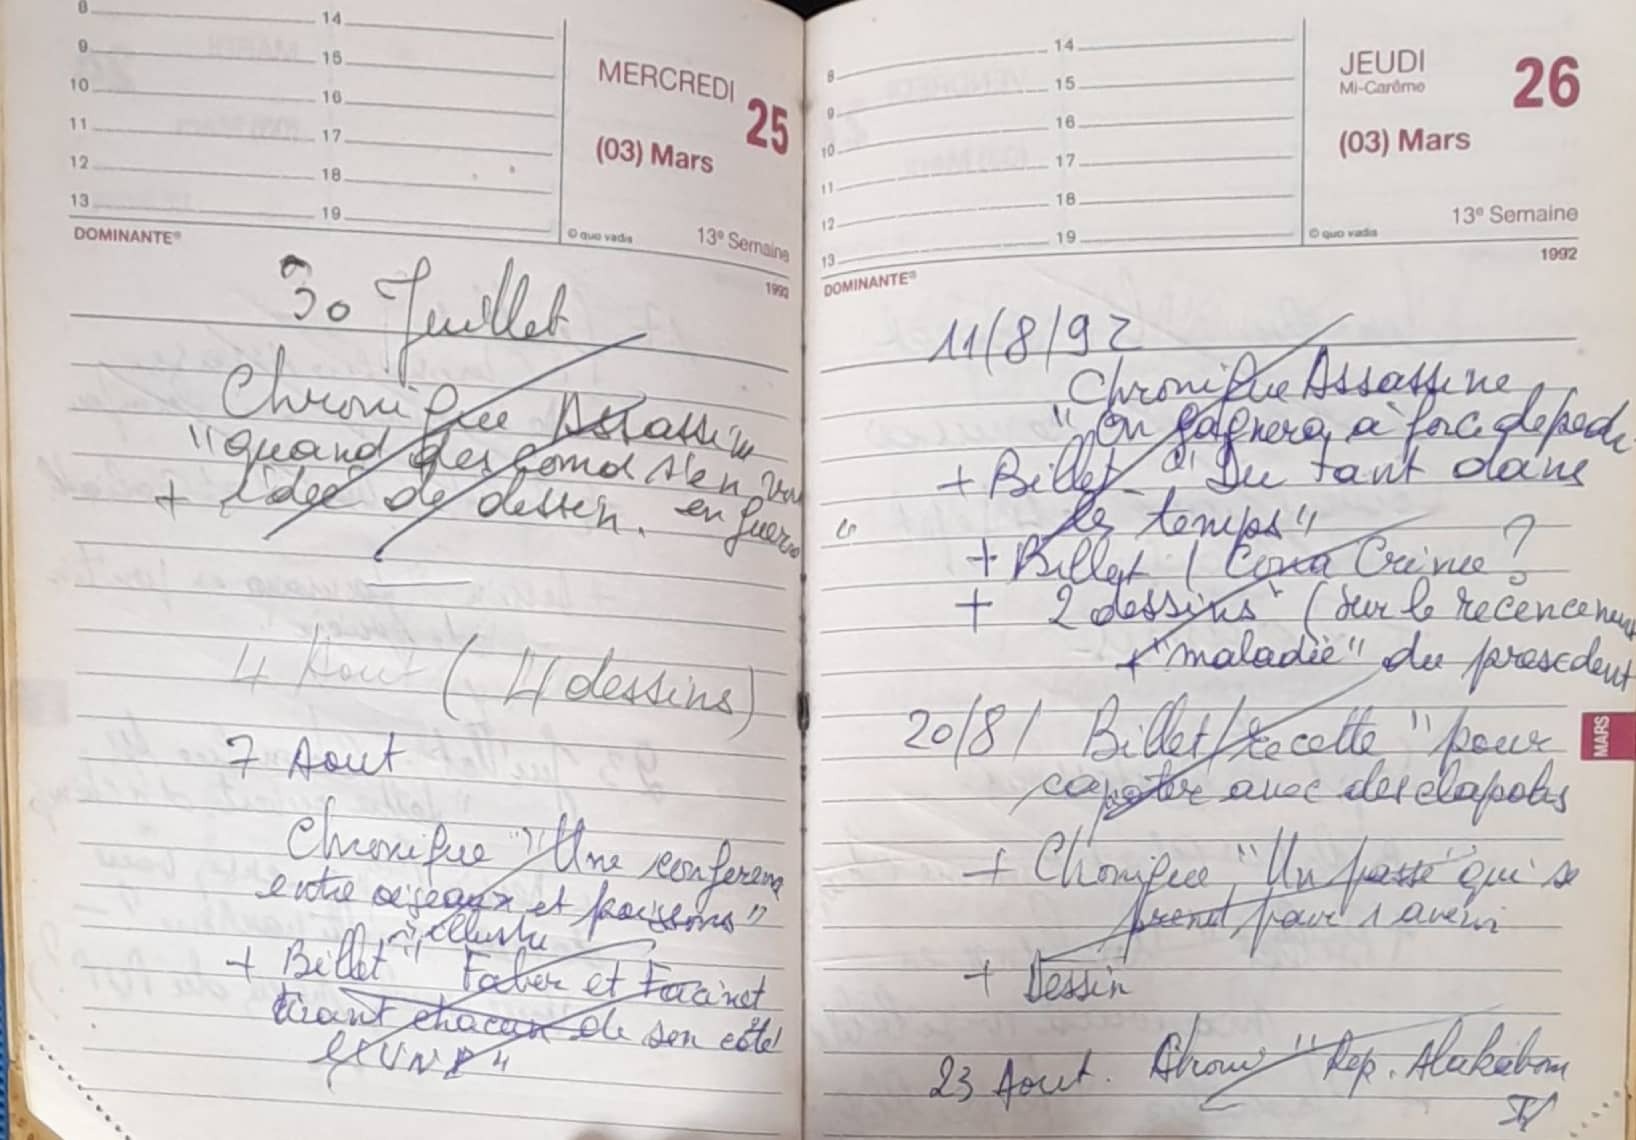 8 14
9 15
10 16
11 17
12 18
13 19
MERCREDI 25
(03) Mars
DOMINANTE®
© quo vadis
13e Semaine
1992
30 Juillet
Chronique Assassine
"quand des cond s'en vont
+ idée de dessin. en guerre
4 Aout (4 dessins)
7 Aout
Chronique "Une conferenc
entre oiseaux et poissons"
illustre
+ Billet "Faber et Facinet
tirant chacun de son côté
"
8 14
9 15
10 16
11 17
12 18
13 19
JEUDI 26
Mi-Carême
(03) Mars
13e Semaine
© quo vadis
1992
DOMINANTE®
11/8/92
Chronique Assassine
"On gagnera à force de
+ Billet "Du tant dans
les temps"
+ Billet / Crime?
+ 2 dessins (sur le recencement
+ "maladie" du president
20/8/ Billet/recette "pour
capoter avec des clapotis
+ Chronique "Un passé qui se
prend pour l avenir
+ Dessin
23 Aout. Chron "Rep. Alakabon
MARS